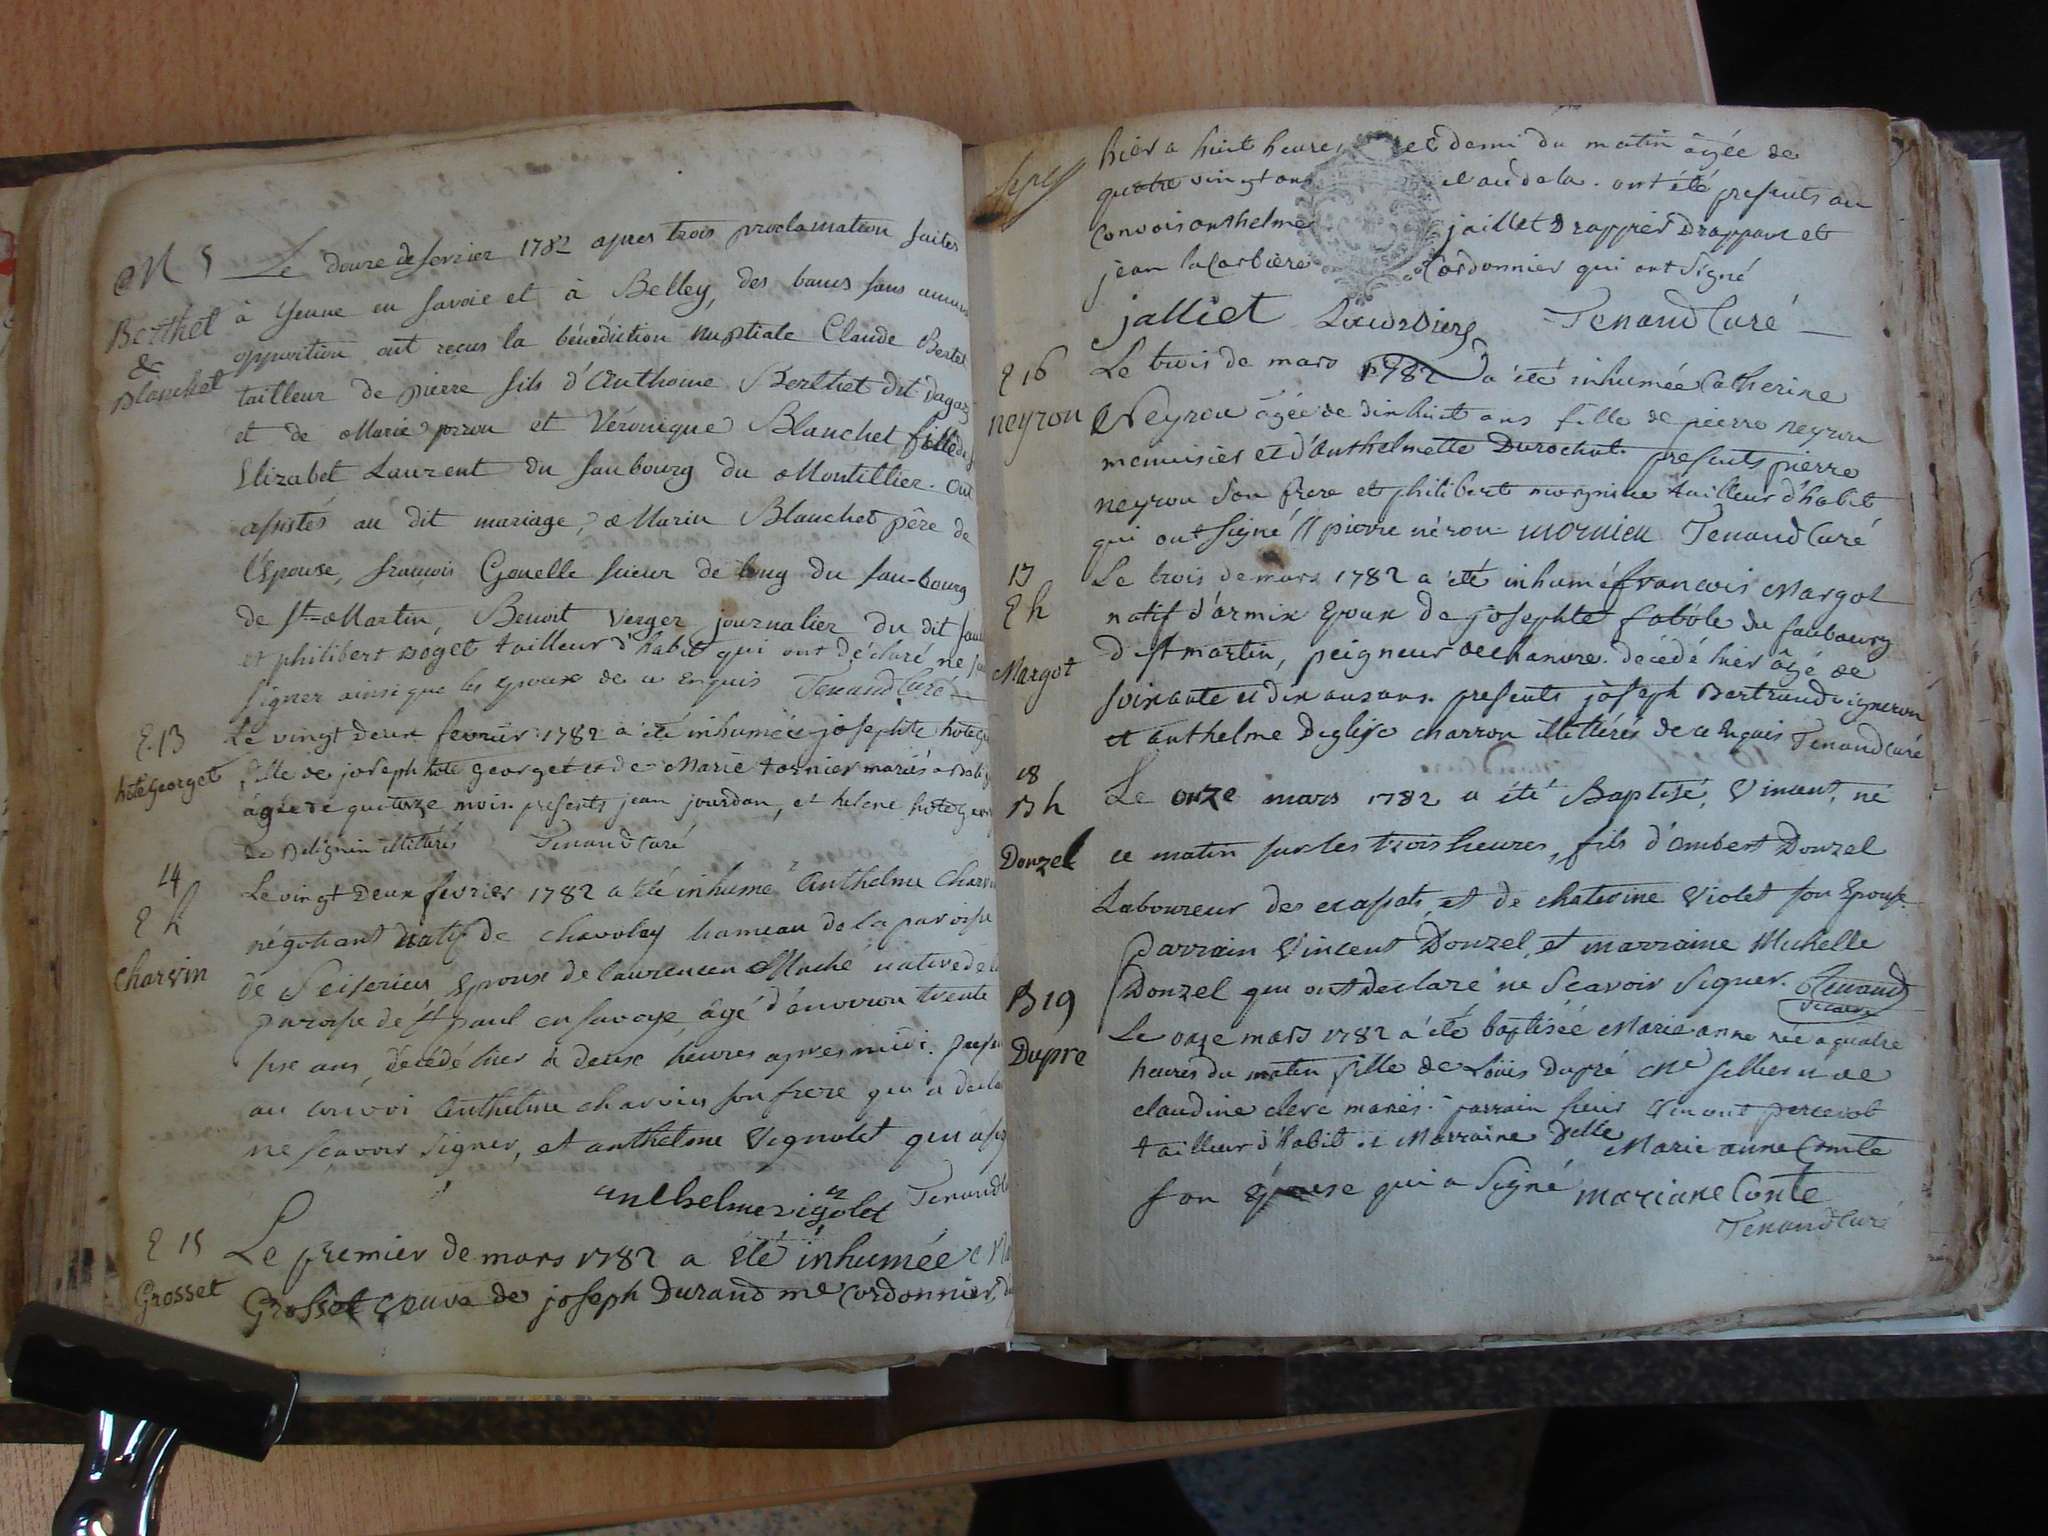 M 5
Berthet
&
Blanchet
Le douze de fevrier 1782 apres trois proclamation faites
à Yenne en Savoie et à Belley, des bancs sans aucune
opposition ont reçus la bénédiction nuptiale Claude Bertet
tailleur de pierre fils d'Anthoine Berthet dit
et de Marie et Véronique Blanchet fille
Elizabet Laurent du faubourg du Montillier. Ont
assistés au dit mariage, Marin Blanchet père de
l'Epouse, francois Gonelle sieur de long du fau-bourg
de St Martin, Benoit Verger journalier du dit
et philibert Boget tailleur d'habit qui ont déclaré ne
signer ainsi que les epoux de ce enquis Tenand Curé
E. 13
hote Georget
Le vingt deux fevrier 1782 a été inhumée josephte hote
fille de joseph hote georget et de Marie tornier mariés a
âgée de quatorze mois. presents jean jourdan, et helene hote
de Belignin illitérés Tenand Curé
14
E h
Charvin
Le vingt deux fevrier 1782 a été inhumé Anthelme
négotiant natif de chavoley hameau de la paroisse
de Ceiserieu Epoux de laurence Maché native de
paroisse de St paul en Savoye, âgé d'environ trente
six ans, décédé hier à deux heures apres midi.
au convoi Anthelme charvin son frere qui a
ne scavoir signer, et anthelme Vignolet qui
anthelme vignolet Tenand
E 15
Grosset
Le premier de mars 1782 a été inhumée
Grosset veuve de joseph Durand me Cordonnier,
hier a huit heures et demi du matin âgée de
quatre vingt ans et au dela. ont été presents au
Convois anthelme jaillet Drappier Drappant et
jean la Corbière Cordonnier qui ont signé
jalliet Tenand Curé
E 16
neyron
Le trois de mars 1782 a été inhumée Catherine
Neyron âgée de dix huit ans fille de pierre neyron
menuisier et d'Anthelmette Durochat. presents pierre
neyron son frere et philibert tailleur d'habit
qui ont signé // pierre néron mornieu Tenand Curé
17
E h
Margot
Le trois de mars 1782 a été inhumé francois Margot
natif d'armix Epoux de josephte du faubourg
d St martin, peigneur de chanvre. décédé hier âgé de
soixante et dix ans. presents joseph Bertrand vigneron
et anthelme Deglise charron illittérés de ce Enquis Tenand Curé
18
B h
Donzel
Le onze mars 1782 a été Baptisé, Vincent, né
ce matin sur les trois heures, fils d'ambert Donzel
Laboureur des ecassats, et de chaterine Violet son Epouse.
parrain Vincent Donzel, et marraine Michelle
Donzel qui ont declaré ne scavoir signer. Tenand
Vicaire
B 19
Dupre
Le onze mars 1782 a été baptisée Marie anne née a quatre
heures du matin fille de Loüis Dupré Me sellier et de
claudine clerc mariés. parrain sieur Vincent percerot
tailleur d'habit et Marraine Delle Marie anne Comte
son Epouse qui a signé mariane Conte
Tenand Curé